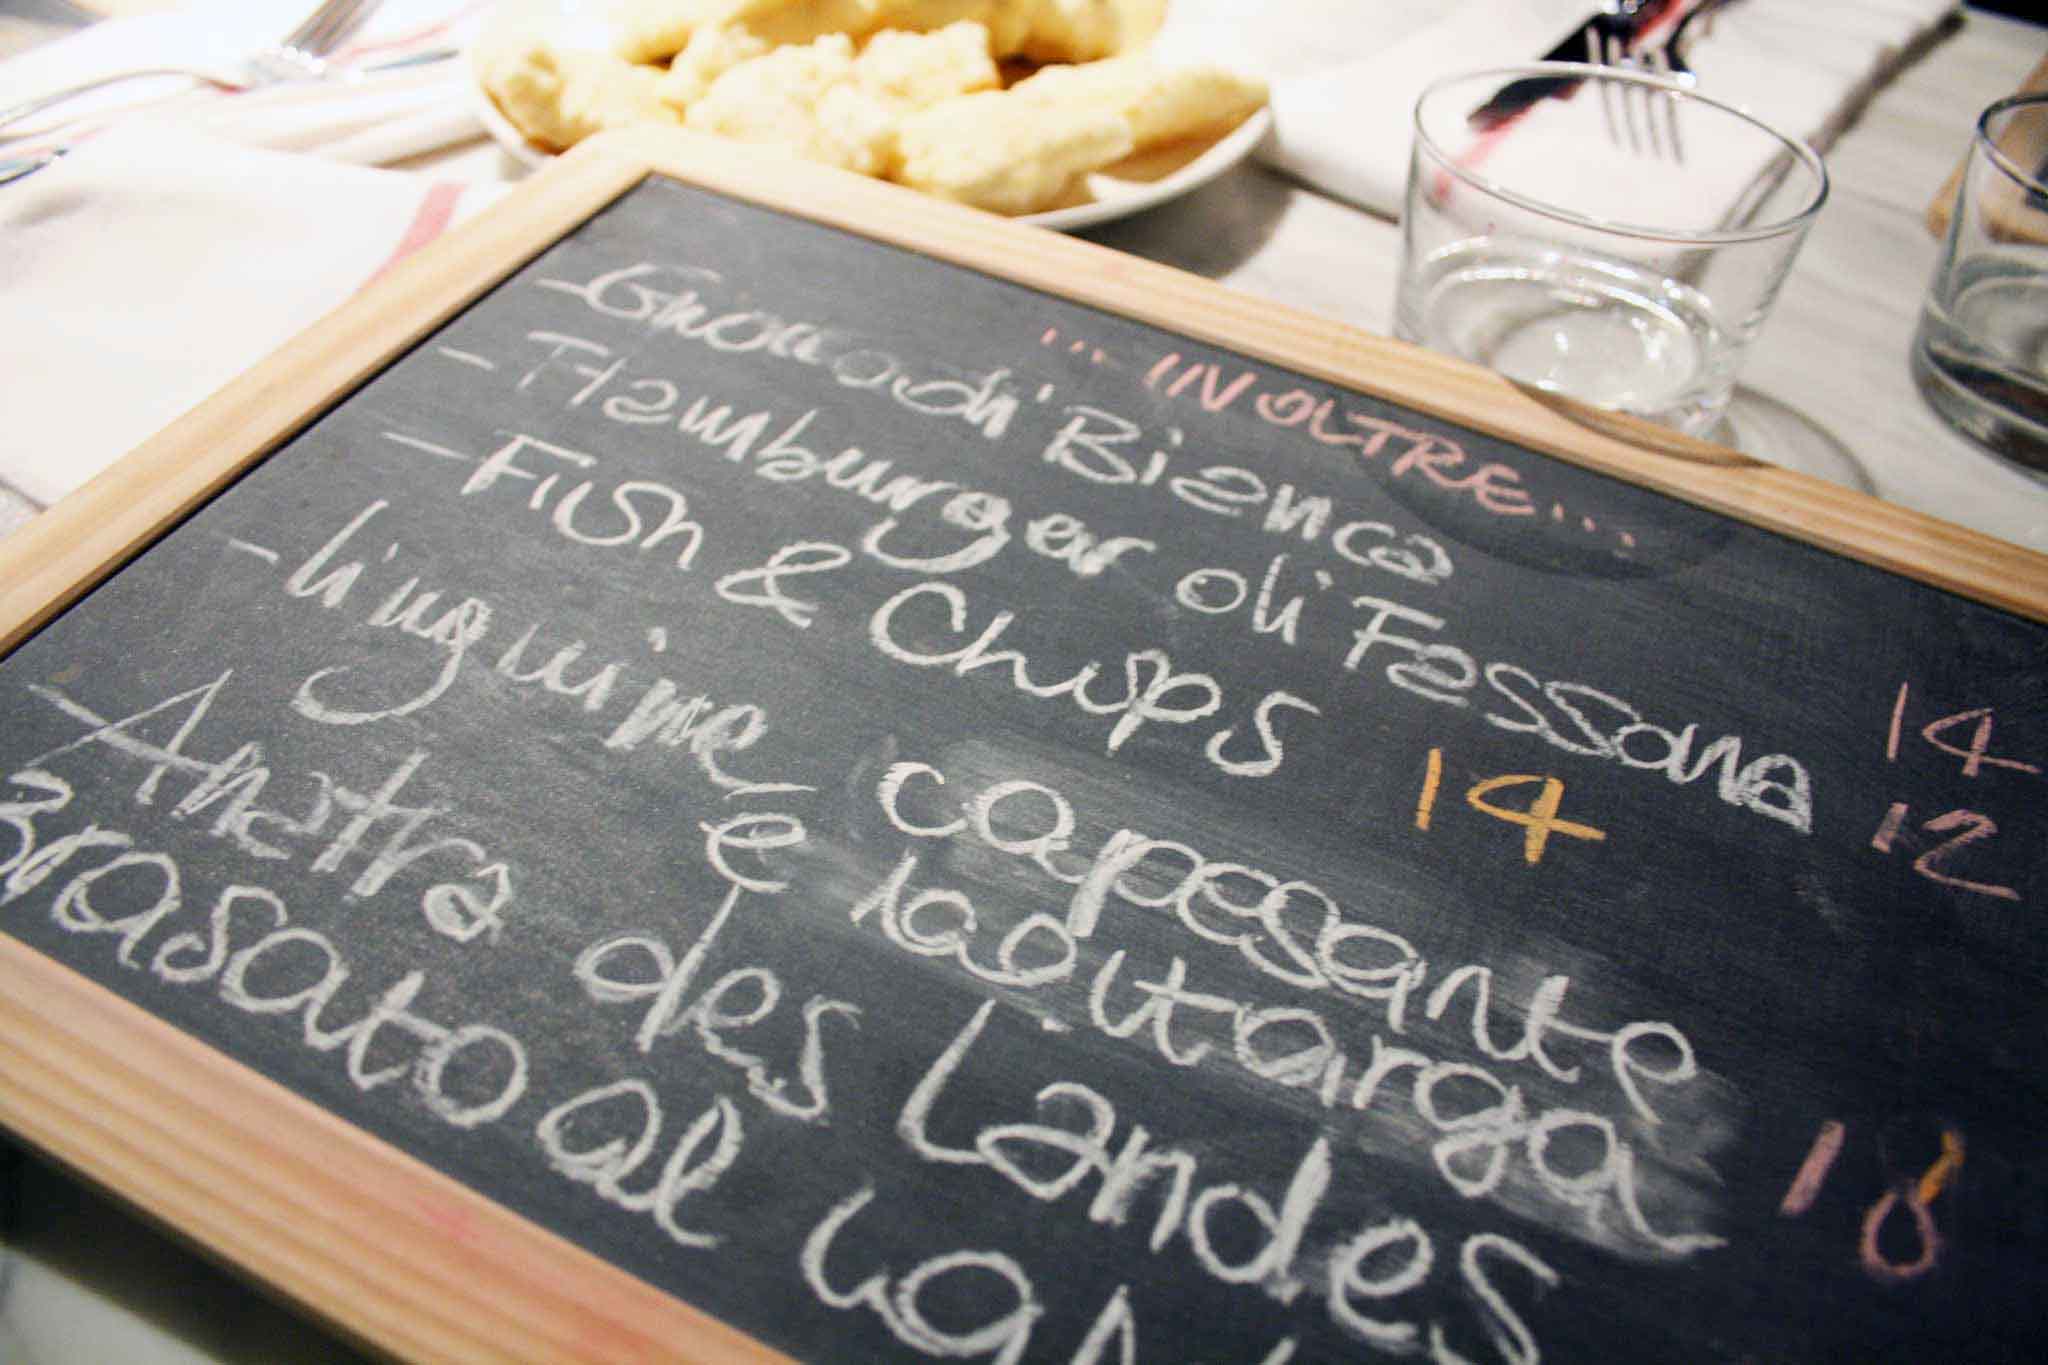 ... INOLTRE ...
- Gnocco di Bianca 14
- Hamburger di Fassona 12
- Fish & Chips 14
- linguine capesante
e bottarga 18
- Anatra des Landes
Brasato al